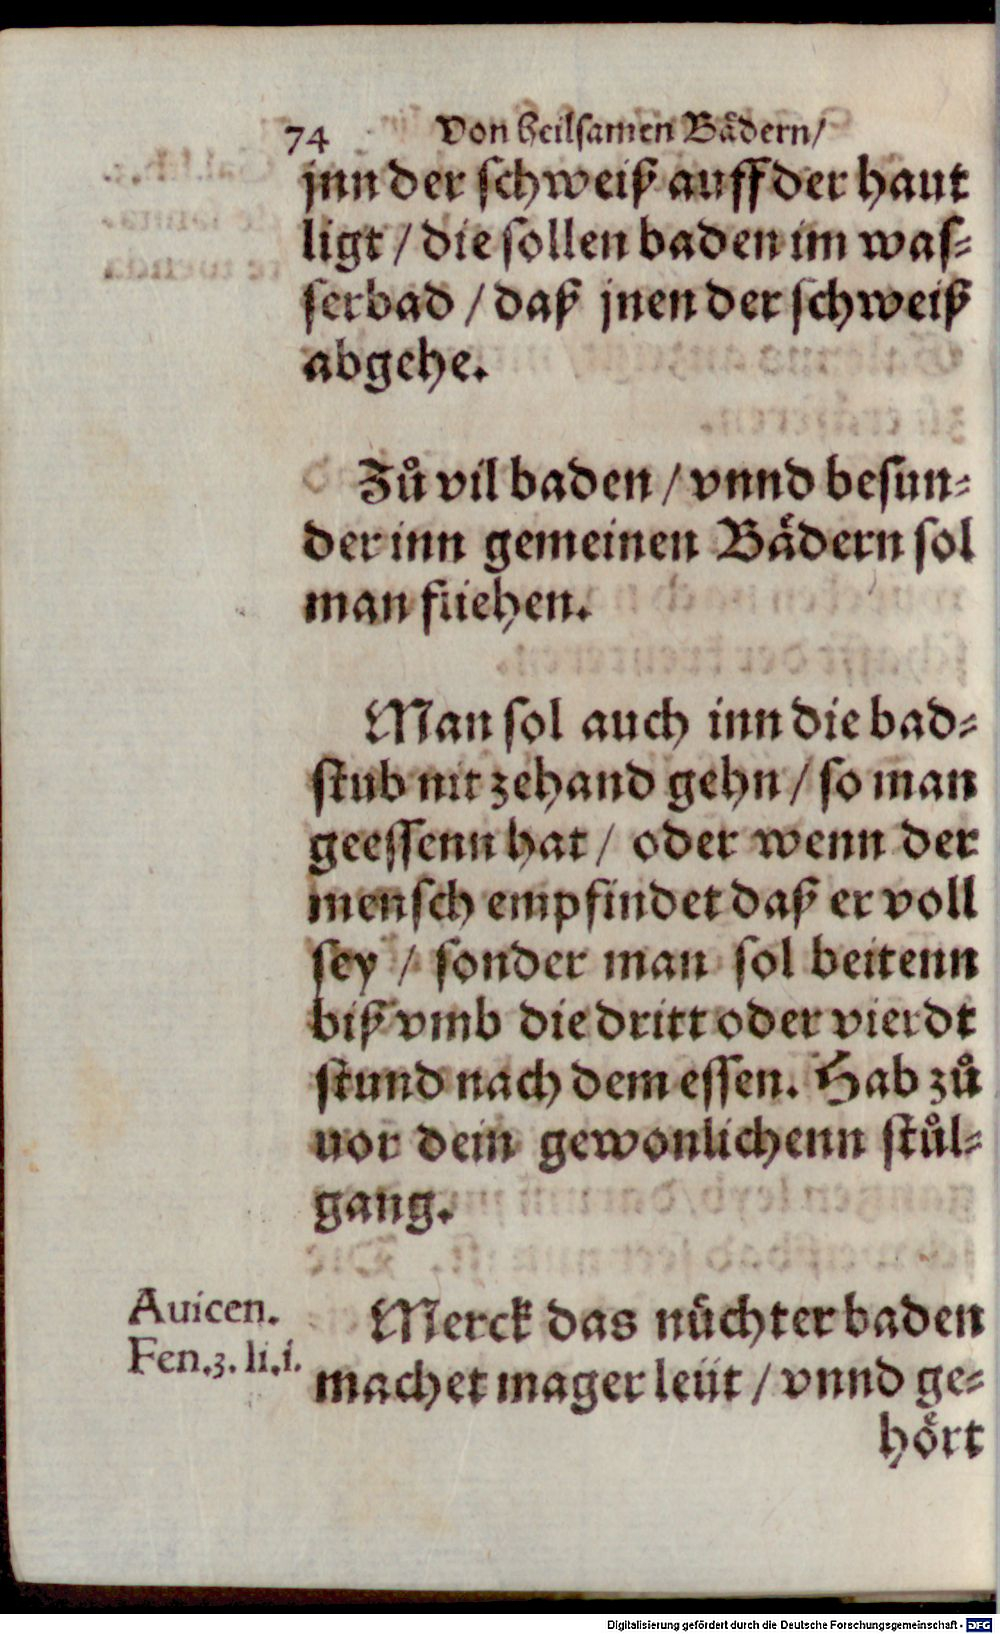 74 Von heilsamen Bådern/
jnn der schweiß auff der haut
ligt / die sollen baden im was⸗
serbad / daß jnen der schweiß
abgehe.
Zů vil baden / vnnd besun⸗
der inn gemeinen Bådern sol
man fliehen.
Man sol auch inn die bad⸗
stub nit zehand gehn / so man
geessenn hat / oder wenn der
mensch empfindet daß er voll
sey / sonder man sol beitenn
biß vmb die dritt oder vierdt
stund nach dem essen. Hab zů
uor dein gewonlichenn stůl⸗
gang.
Avicen.
Fen.3. li.i.
Merck das nüchter baden
machet mager leüt / vnnd ge⸗
hört
Digitalisierung gefördert durch die Deutsche Forschungsgemeinschaft - DFG